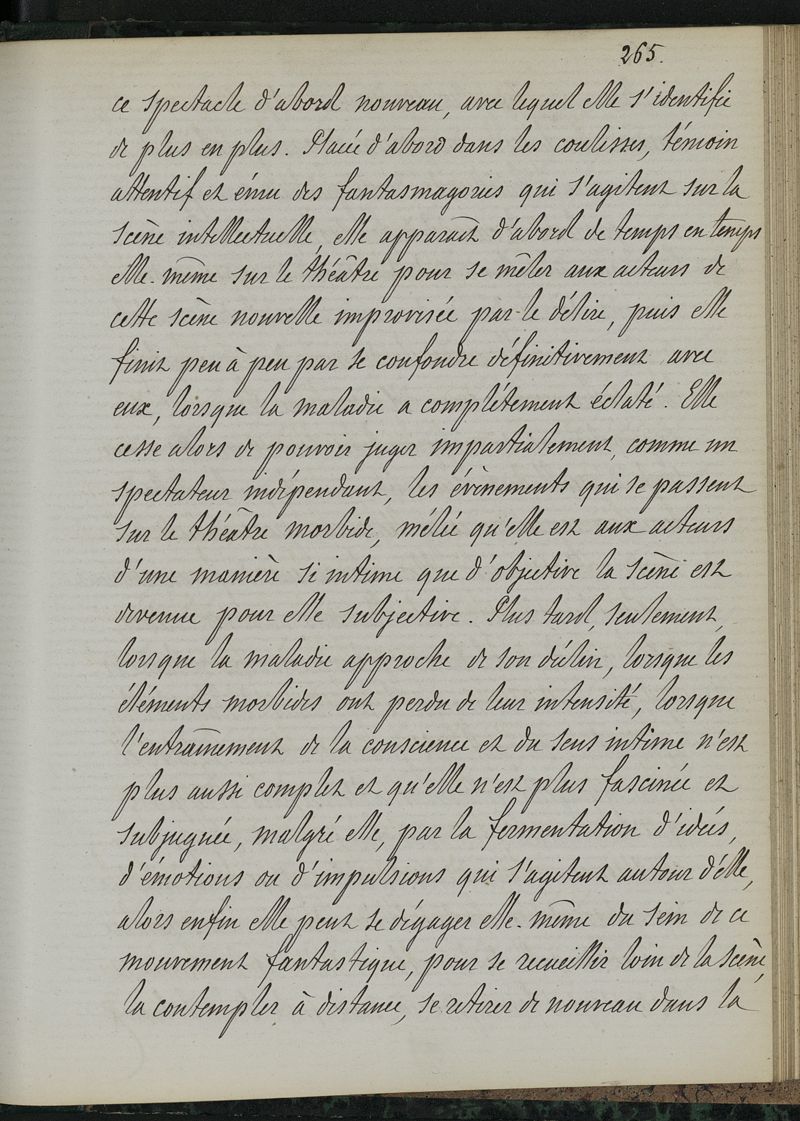 265.
ce spectacle d'abord nouveau, avec lequel elle s'identifie
de plus en plus. Placée d'abord dans les coulisses, témoin
attentif et ému des fantasmagories qui s'agitent sur la
scène intellectuelle, elle apparaît d'abord de temps en temps
elle-même sur le théâtre pour se mêler aux acteurs de
cette scène nouvelle improvisée par le délire, puis elle
finit peu à peu par se confondre définitivement avec
eux, lorsque la maladie a complétement éclaté. Elle
cesse alors de pouvoir juger impartialement, comme un
spectateur indépendant, les évènements qui se passent
sur le théâtre morbide, mêlée qu'elle est aux acteurs
d'une manière si intime que d'objective la scène est
devenue pour elle subjective. Plus tard, seulement,
lorsque la maladie approche de son déclin, lorsque les
éléments morbides ont perdu de leur intensité, lorsque
l'entraînement de la conscience et du sens intime n'est
plus aussi complet et qu'elle n'est plus fascinée et
subjuguée, malgré elle, par la fermentation d'idées,
d'émotions ou d'impulsions qui s'agitent autour d'elle,
alors enfin elle peut se dégager elle-même du sein de ce
mouvement fantastique, pour se recueillir loin de la scène,
la contempler à distance, se retirer de nouveau dans la